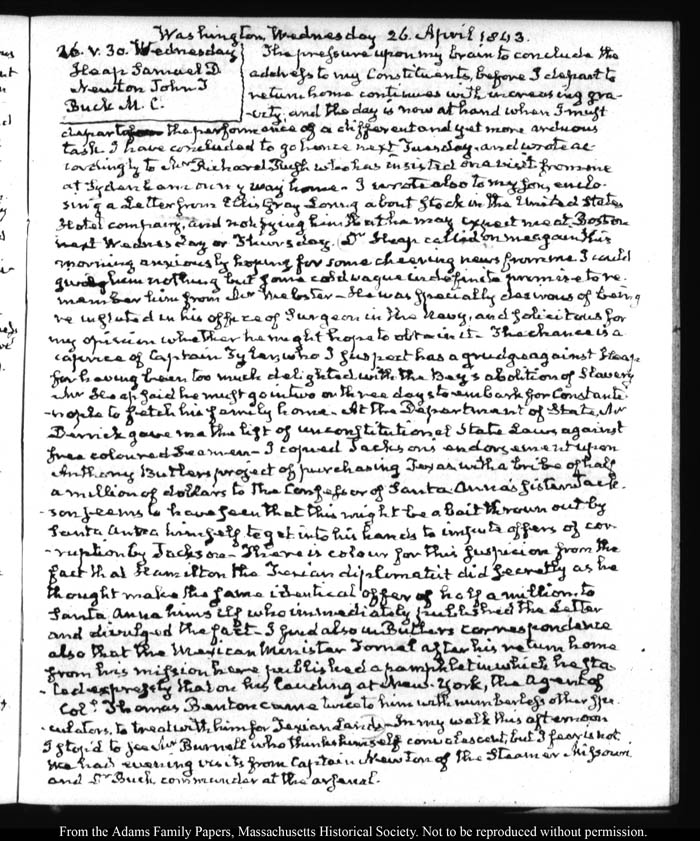 Washington, Wednesday 26. April 1843.
26. V. 30. Wednesday
Heap Samuel D
Newton John T
Buck M. C.
The pressure upon my brain to conclude the
address to my Constituents, before I depart to
return home continues with increasing gra-
-vity, and the day is now at hand when I must
depart the performance of a different and yet more arduous
task. I have concluded to go hence next Tuesday, and wrote ac
cordingly to Mr Richard Pugh who has insisted on a visit from me
at on my way home. I wrote also to my Son, enclo-
sing a Letter from Ellis Gray Loring about Stock in the United States
Hotel company, and notifying him that he may expect me at Boston
next Wednesday or Thursday. Dr Heap called on me again this
morning anxiously hoping for some cheering news from me. I could
give him nothing but some cold vague indefinite promise to re-
member him from Mr Webster. He was specially desirous of being
re instated in his office of Surgeon in the Navy, and solicitous for
my opinion whether he might hope to obtain it. The chance is a
caprice of Captain Tyler, who I suspect has a grudge against Heap
for having been too much delighted with the Bey's abolition of Slavery
Mr Heap said he must go in two or three days to embark for Constanti-
-nople to fetch his family home. At the Department of State, Mr
Derrick gave me the list of unconstitutional State Laws against
free coloured Seamen. I copied Jackson's endorsement upon
Anthony Butler's project of purchasing Texas with a bribe of half
a million of dollars to the Confessor of Santa Anna's Sister. Jack-
-son seems to have seen that this might be a bait thrown out by
Santa Anna himself to get into his hands to impute offers of cor-
-ruption by Jackson. There is colour for this suspicion from the
fact that Hamilton the Texian diplomatist did secretly as he
thought make the same identical offer of half a million, to
Santa Anna himself who immediately published the Letter
and divulged the fact. I find also in Butler's correspondence
also that the Mexican Minister Tornel after his return home
from his mission here published a pamphlet in which he sta-
-ted expressly that on his landing at New-York, the Agent of
Col. Thomas Benton came twice to him with numberless other spe-
-culators, to treat with him for Texian Lands. In my walk this afternoon
I stop'd to see Mr Burnell who thinks himself convalescent, but I fear is not
We had evening visits from Captain Newton of the Steamer Missouri
and Dr Buck commander at the arsenal.
From the Adams Family Papers, Massachusetts Historical Society. Not to be reproduced without permission.